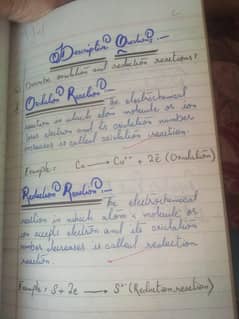 Q Descriptive Questions:-
Describe oxidation and reduction reactions?
Oxidation Reaction:-
The electrochemical
reaction in which atom molecule or ion
loses electron and its oxidation number
increases is called oxidation reaction.
Example: Ca → Ca⁺⁺ + 2e̅ (Oxidation)
Reduction Reaction:-
The electrochemical
reaction in which atom, molecule or
ion accepts electron and its oxidation
number decreases is called reduction
reaction.
Example: S + 2e → S⁻⁻ (Reduction reaction)